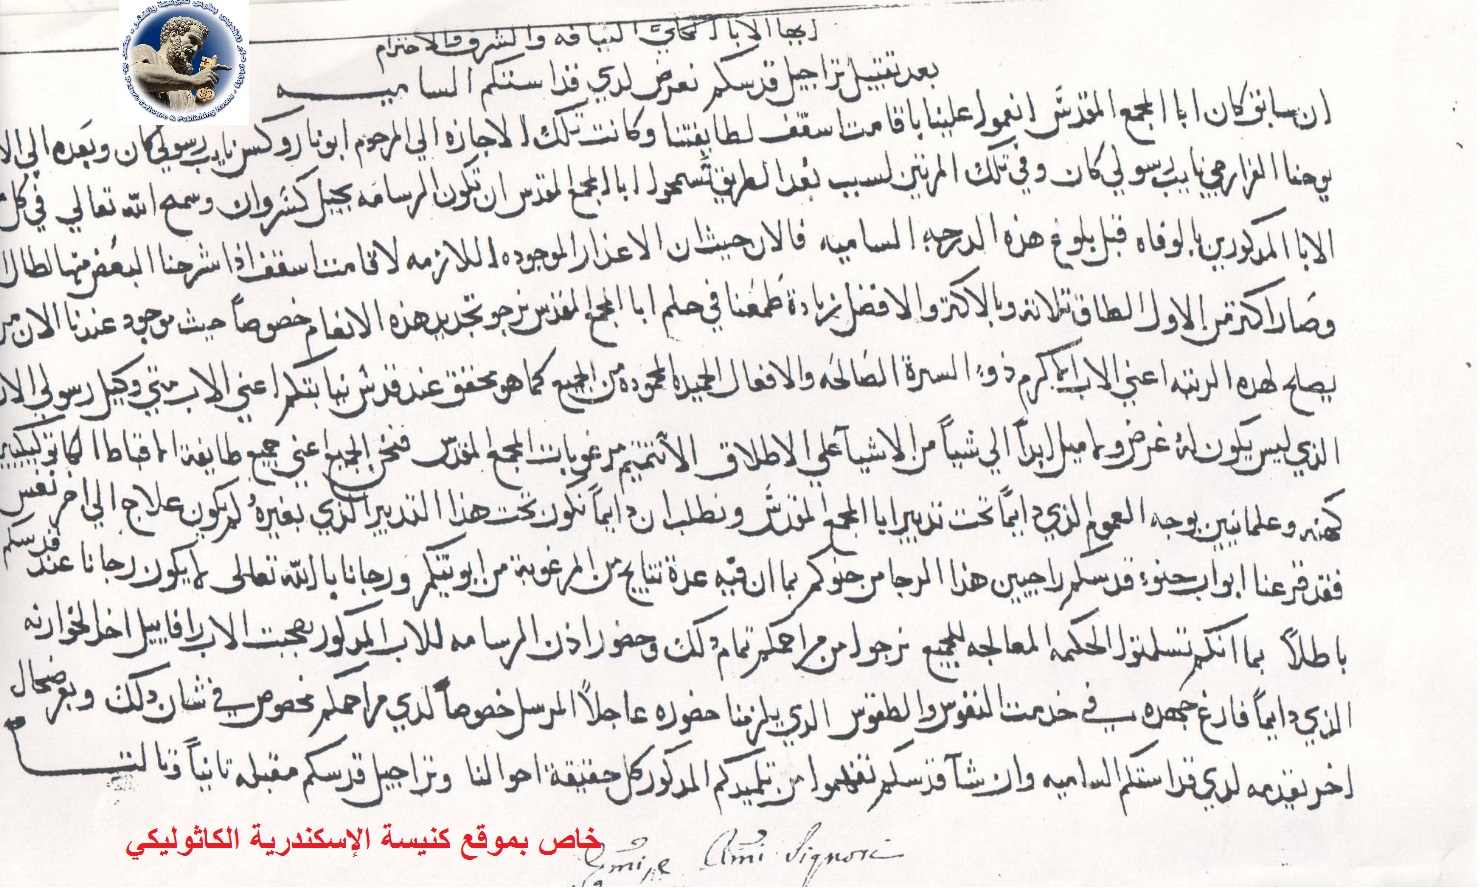 ايها الابا الكلي النيافه والشرف والاحترام
بعد تقبيل تراجيل قدسكم نعرض لدي قداستكم الساميه
ان سابق كان ابا المجمع المقدس انعموا علينا باقامت اسقف لطايفتنا وكانت تلك الاجازه الي المرحوم ابونا روكس نايب رسولي كان وبعده الي الا
يوحنا الفرارجي نايب رسولي كان وفي تلك المرتين لسبب بعد الطريق تسمحوا ابا المجمع المقدس ان تكون الرسامه بجبل كسروان وسمح الله تعالي في كل
الابا المدكورين بالوفاه قبل بلوغ هذه الدرجه الساميه فالان حيث ان الاعدار الموجوده اللازمه لاقامت اسقف اذا شرحنا البعض منها لطال
وصار اكتر من الاول الطاق تلاته وبالاكتر والافضل زيادة طمعنا في حلم ابا المجمع المقدس نرجو تجديد هذه الانعام خصوصاً حيث موجود عندنا الان من
يصلح لهده الرتبه اعني الاب المكرم ذو السيرة الصالحه والافعال الحميده المحموده من الجميع كما هو محقق عند قدس نيابتكم اعني الاب متي وكيل رسولي الان
الذي ليس يكون له غرض ولا ميل ابداً الي شياً من الاشيا علي الاطلاق الا تتميم مرغوبات المجمع المقدس فنحن الجميع اعني جميع طايفة الاقباط الكاتوليكيين
كهنه وعلمانيين بوجه العموم الذي دايماً تحت تدبير ابا المجمع المقدس ونطلب ان دايماً نكون تحت هذا التدبير الذي بغيره لم يكون علاج الي اخر نفس
فقد قرعنا ابواب حنو قدسكم راجيين هذا الرجا من حنوكم بما ان فيه عدة نتايج من المرغوبة من ابوتيكم ورجانا بالله تعالى لا يكون رجانا عند قدسكم
باطلاً بما انكم تسلمتوا الحكمه المعالجه للجميع نرجوا من مراحمكم تمام دلك وحضور ادن الرسامه للاب المدكور بصحبت الاب رافاييل احد الخوارنه
الذي دايماً فارغ جهده في خدمت النفوس والطقوس الذي يلزمنا حضوره عاجلاً المرسل خصوصاً لدي مراحمكم مخصوص في شان دلك وبعرضحال
اخر نقدمه لدي قداستكم الساميه وان شآ قدسكم تفهموا من تلميدكم المدكور كل حقيقة احوالنا وتراجيل قدسكم مقبله تانياً وتالتا
خاص بموقع كنيسة الإسكندرية الكاثوليكي
Signori